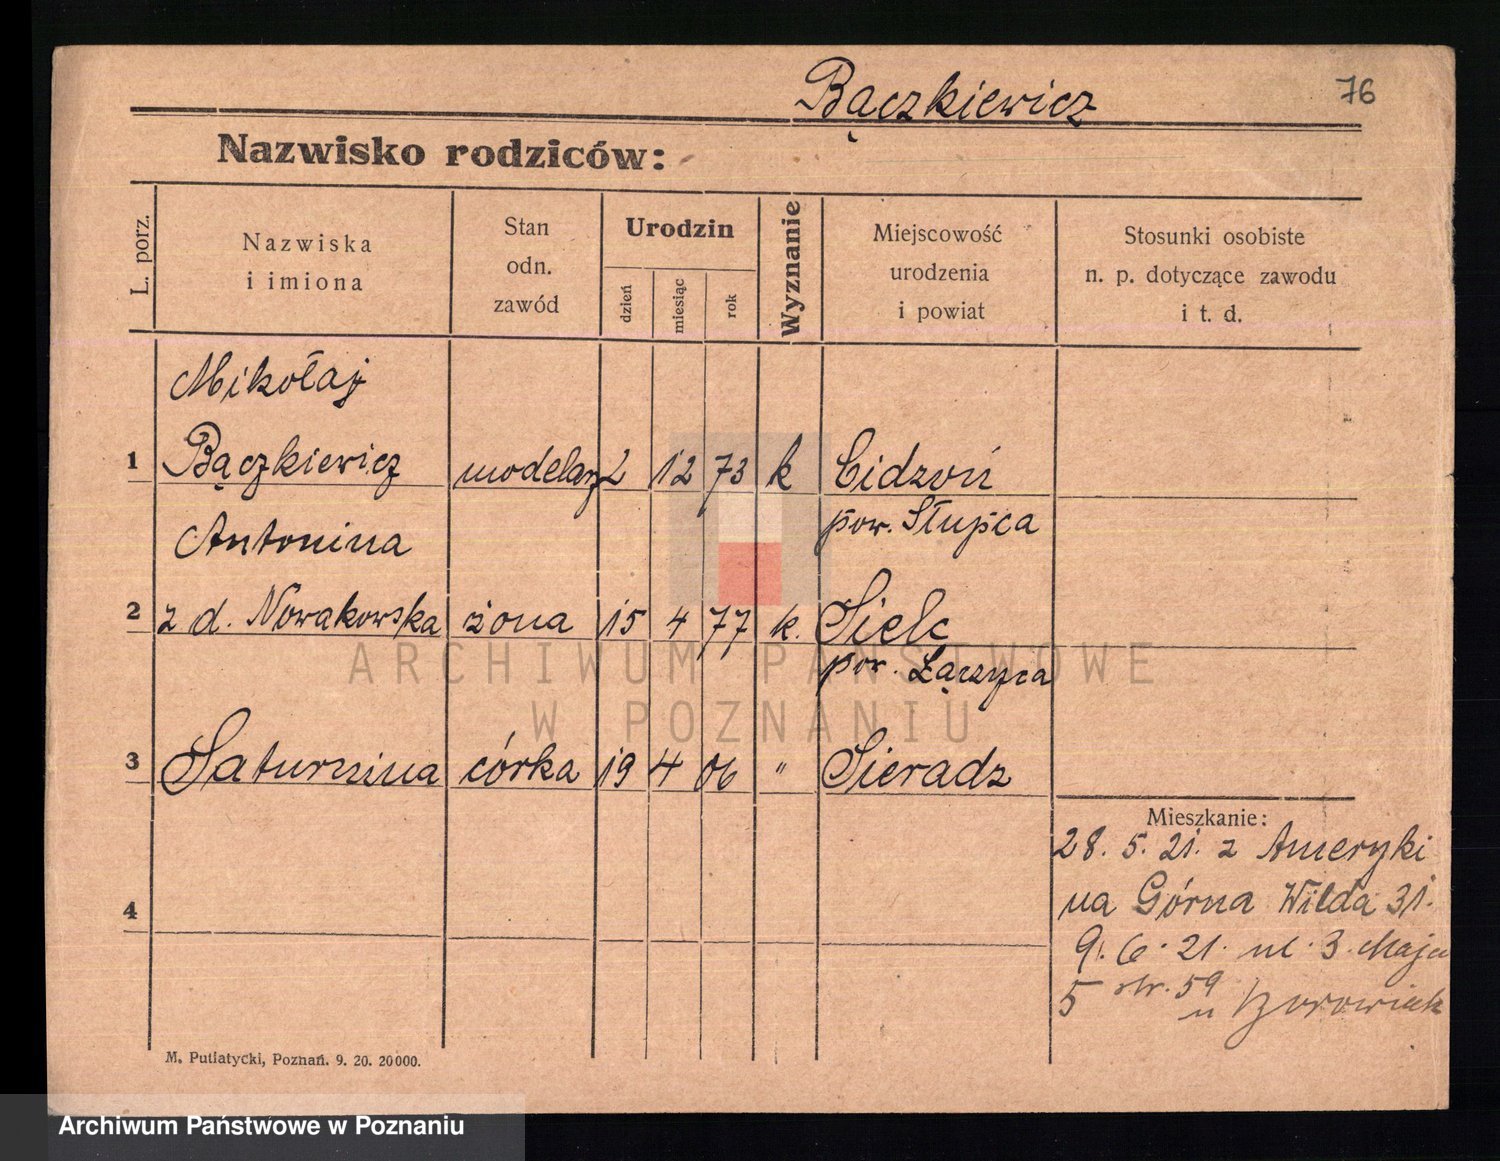 Bączkiewicz
76
Nazwisko rodziców:
L. porz.
Nazwiska
i imiona
Stan
odn.
zawód
Urodzin
dzień
miesiąc
rok
Wyznanie
Miejscowość
urodzenia
i powiat
Stosunki osobiste
n. p. dotyczące zawodu
i t. d.
Mikołaj
1 Bączkiewicz modelarz 2 12 73 k Cidzoń
pow. Słupca
Antonina
2 z d. Nowakowska żona 15 4 77 k. Sielc
pow. Łączyca
3 Saturnina córka 19 4 06 " Sieradz
4
Mieszkanie:
28. 5. 21. z Ameryki
na Górna Wilda 31.
9. 6. 21. ul. 3. Maja
5 str. 59
u Borowiak
M. Putiatycki, Poznań. 9. 20. 20000.
ARCHIWUM PAŃSTWOWE
W POZNANIU
Archiwum Państwowe w Poznaniu